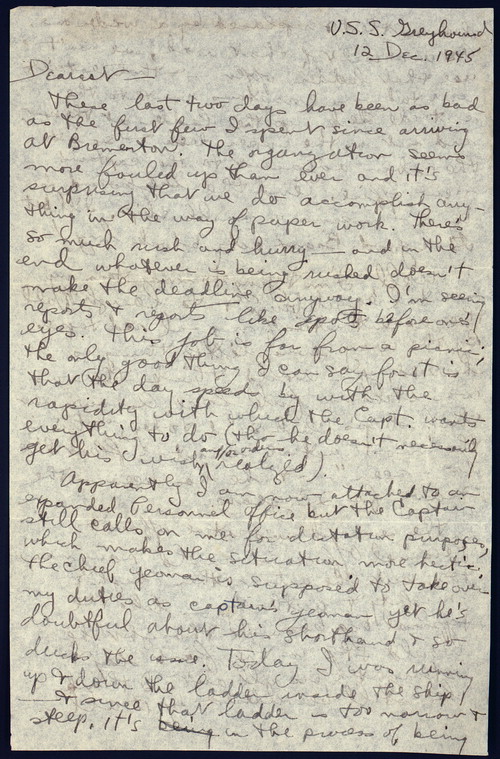 U.S.S. Greyhound
12 Dec. 1945
Dearest —
These last two days have been as bad
as the first few I spent since arriving
at Bremerton. The organization seems
more fouled up than ever and it's
surprising that we do accomplish any-
thing in the way of paper work. There's
so much rush and hurry — and in the
end whatever is being rushed doesn't
make the deadline anyway. I'm seeing
reports & reports like spots before one's
eyes. This job is far from a picnic;
the only good thing I can say for it is
that the day speeds by with the
rapidity with which the Capt. wants
everything to do (tho he doesn't necessarily
get his wish and/or orders realized).
Apparently I am now attached to an
expanded Personnel Office but the Captain
still calls on me for dictation purposes,
which makes the situation more hectic.
The chief yeoman is supposed to take over
my duties as captain's yeoman yet he's
doubtful about his shorthand & so
ducks the issue. Today I was running
up & down the ladder inside the ship,
& since that ladder is too narrow &
steep, it's being in the process of being